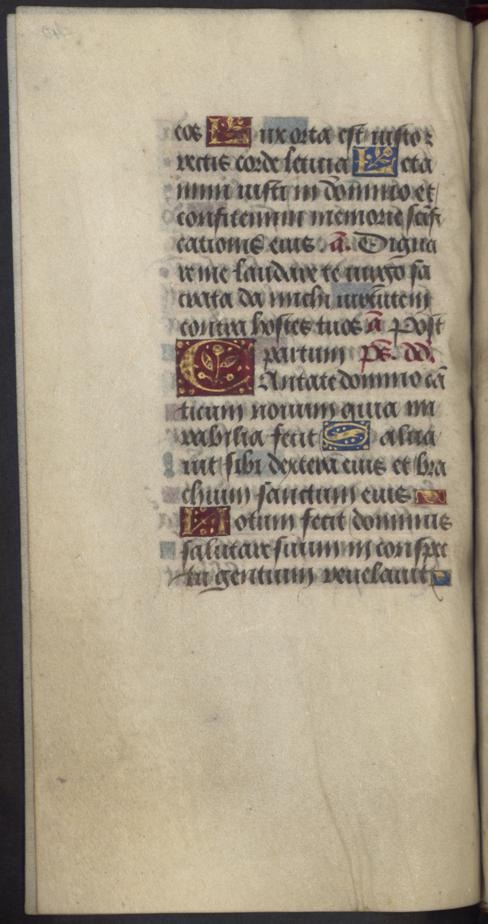 eos Lux orta est iusto z
rectis corde leticia Leta
mini iusti in dōmino et
confitemini memorie scīfi
cationis eius. ā. Digna
re me laudare te uirgo sa
crata da michi uirtutem
contra hostes tuos ā Post
partum ps. dd.
CAntate domino cā
ticum nouum quia mi
rabilia fecit Salua
uit sibi dextera eius et bra
chium sanctum eius
Notum fecit dominus
salutare suum in conspec
tu gentium reuelauit